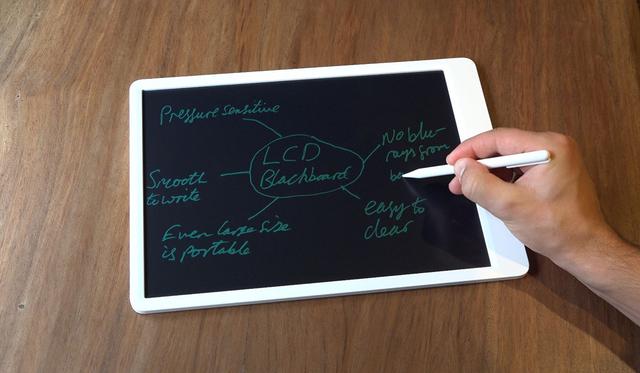 Pressure sensitive
LCD
Blackboard
No blu-
rays from
Smooth
to write
easy to
clear
Even large size
is portable